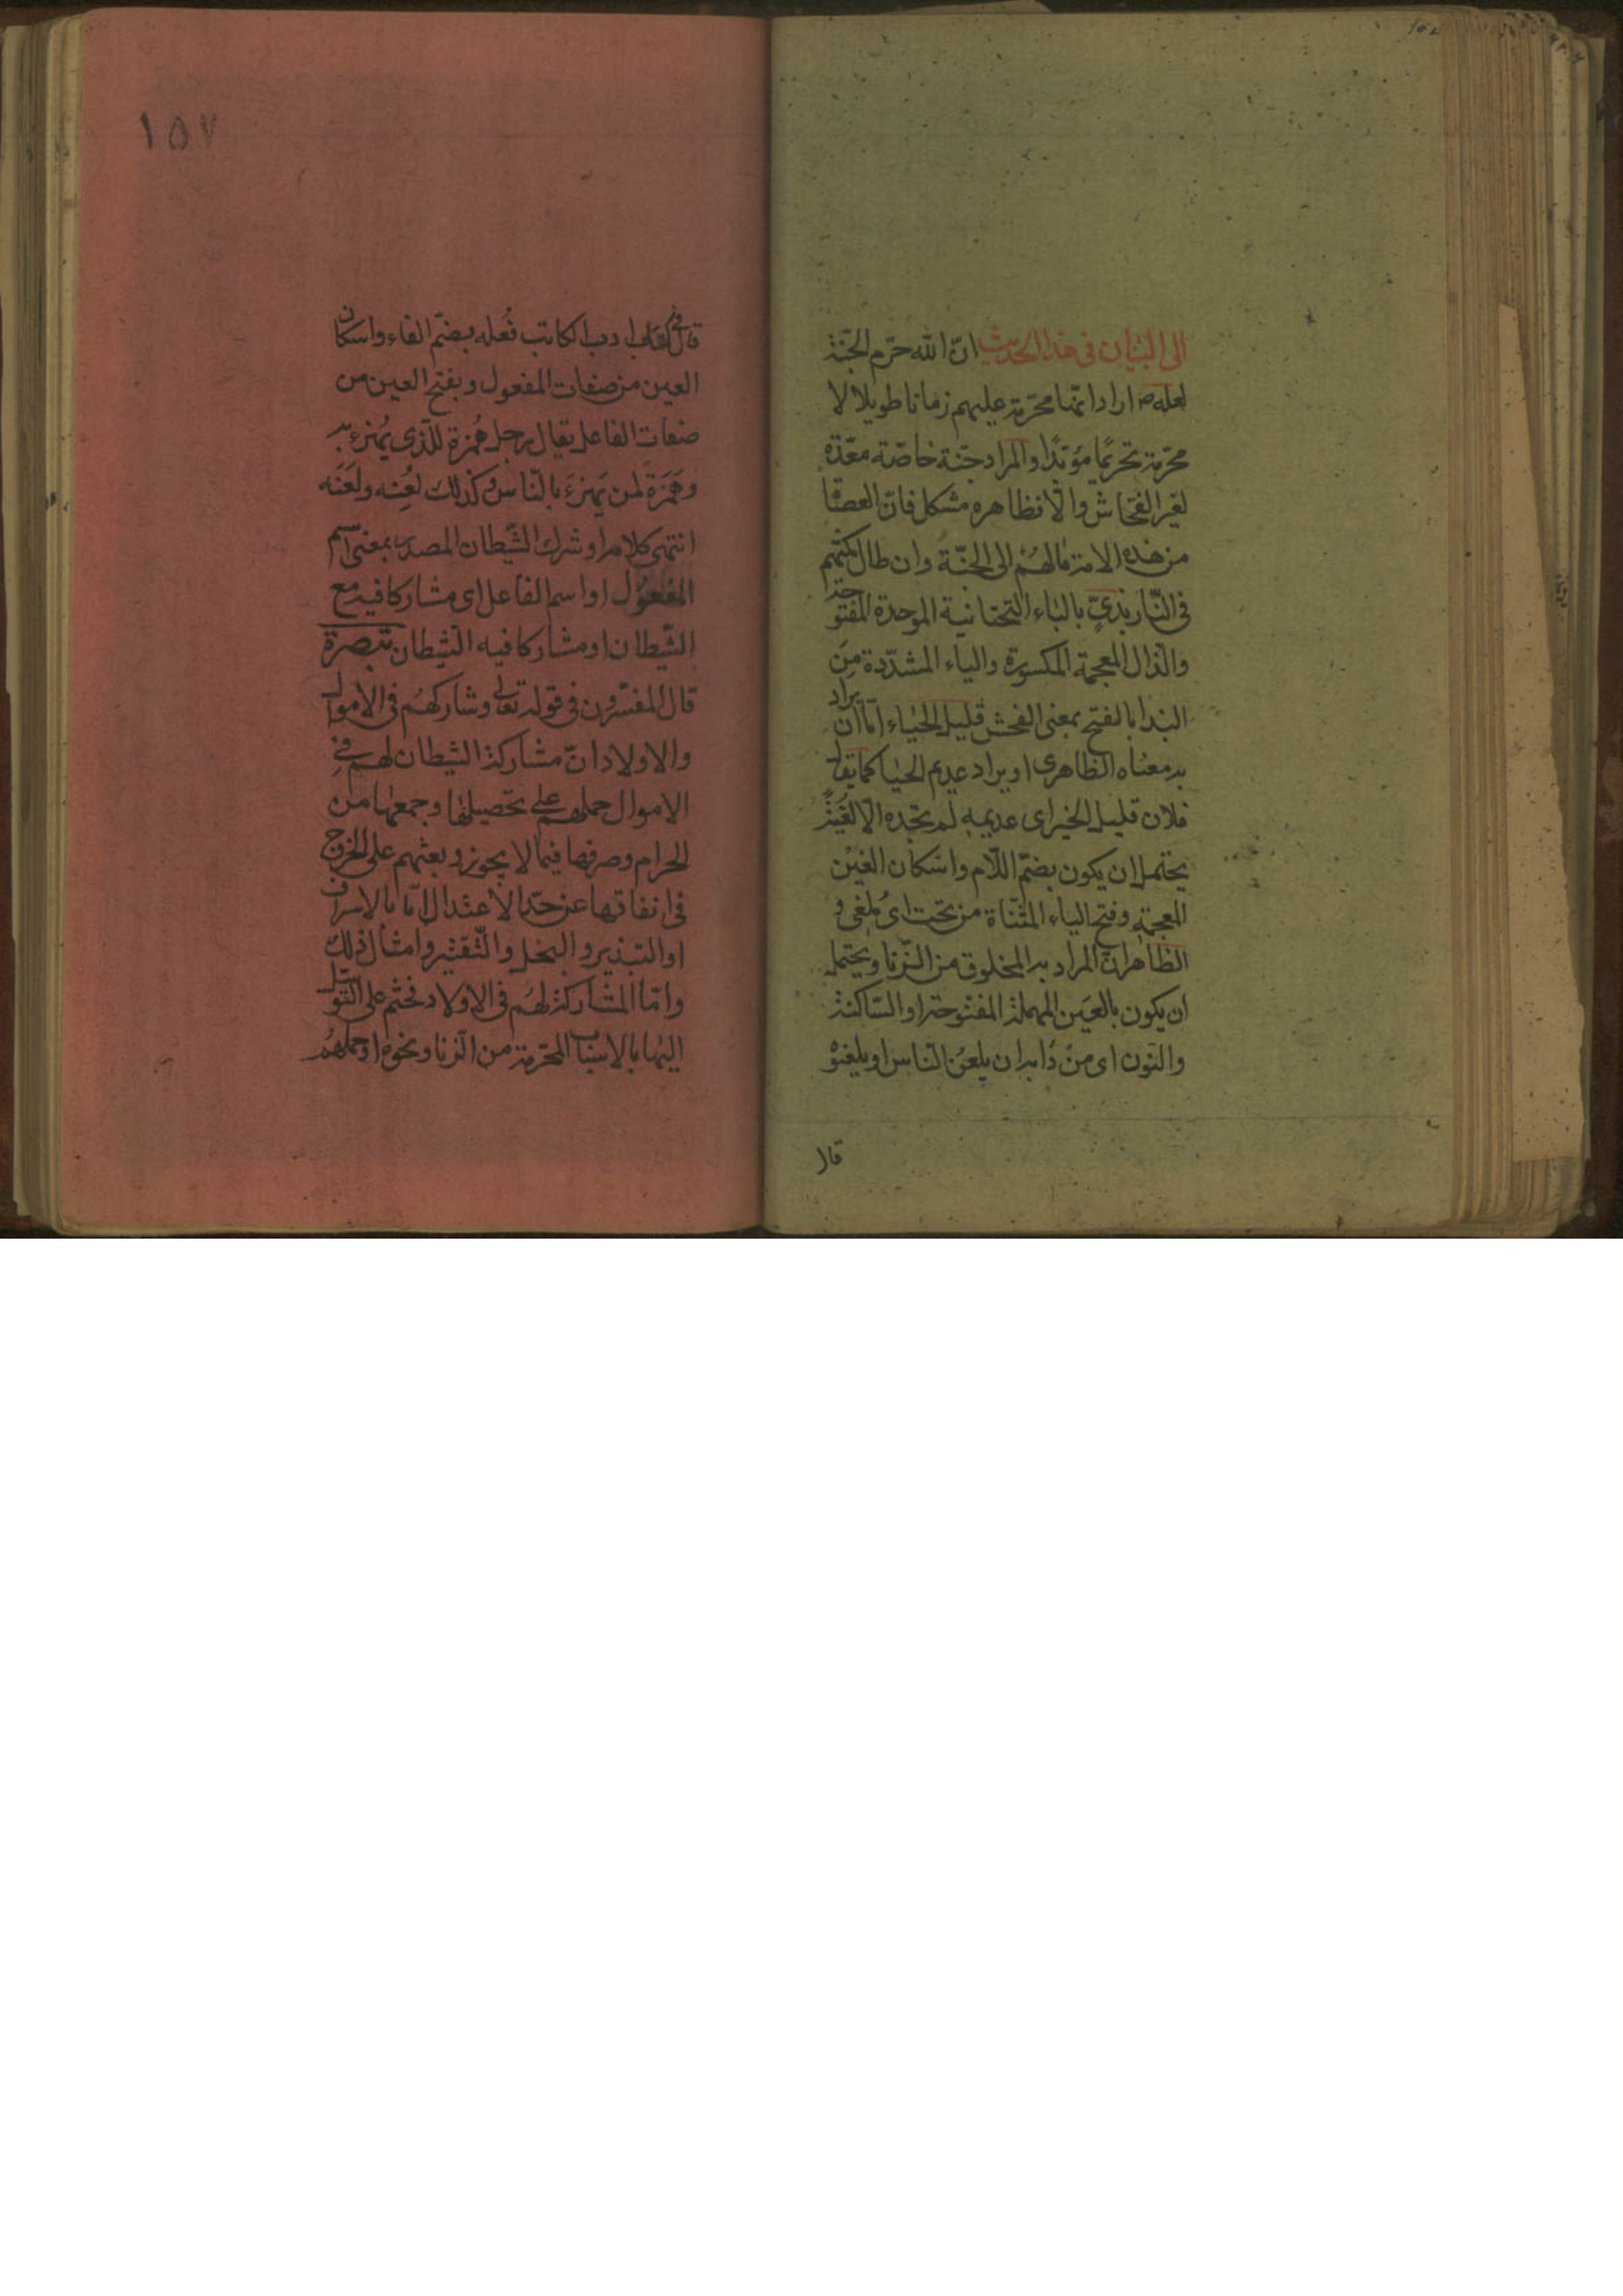 الى البيان فى هذا الحديث انّ الله حرّم الجنّة
لعله ص اراد انّها محرّمة عليهم زمانا طويلا لا
محرّمة تحريمًا مؤبّدًا و المراد جنّة خاصّة معدّة
لغير الفحّاش والّا فظاهره مشكل فانّ العصاة
من هذه الامة مالهُم الى الجنّة وان طال مكثهم
فى النّار بذىّ بالباء التحتانية الموحدة المفتوحة
والذال المعجمة المكسورة والياء المشدّدة مِن
البذا بالفتح بمعنى الفحش قليل الحيٰاء امّا ان يراد
به معناه الظاهرى او يراد عديم الحيا كما يقال
فلان قليل الخير اى عديمه لم تجده الّا لغيّة
يحتمل ان يكون بضمّ اللّام واسكان الغيْن
المعجمة وفتح الياء المثنّاة من تحت اى مُلغى و
الظاهر انّ المراد به المخلوق من الزّنا ويحتمل
ان يكون بالعين المهملة المفتوحة او السّاكنة
والنون اى من دابه ان يلعن النّاس او يلعنوْه
قال
١٥٧
قال فى كتاب ادب الكاتب فُعله بضمّ الفاء واسكان
العين من صفات المفعول وبفتح العين من
صفات الفاعل يقال رجل هُمزة للّذى يُهزء به
وهُمَزَة لمن يَهزءَ بالنّاس وكذلك لُعنه ولُعَنَه
انتهى كلامه او شرك الشّيطان المصدر بمعنى اسم
المفعول او اسم الفاعل اى مشاركا فيه مع
الشّيطان او مشاركا فيه الشيطان تبصرة
قال المفسّرون فى قوله تعالى وشاركهُم فى الاموال
والاولاد انّ مشاركة الشيطان لهم فى
الاموال حملهم على تحصيلها وجمعها من
الحرام وصرفها فيما لا يجوز وبعثهم على الخروج
فى انفاقها عن حدّ الاعتدال امّا بالاسراف
او التبذير و البخل والتّقتير وامثال ذلك
وامّا المشاركة لهُم فى الاولاد فحثهم على التّوسّل
اليها بالاسباب المحرّمة من الزنا ونحوه او حملهُم